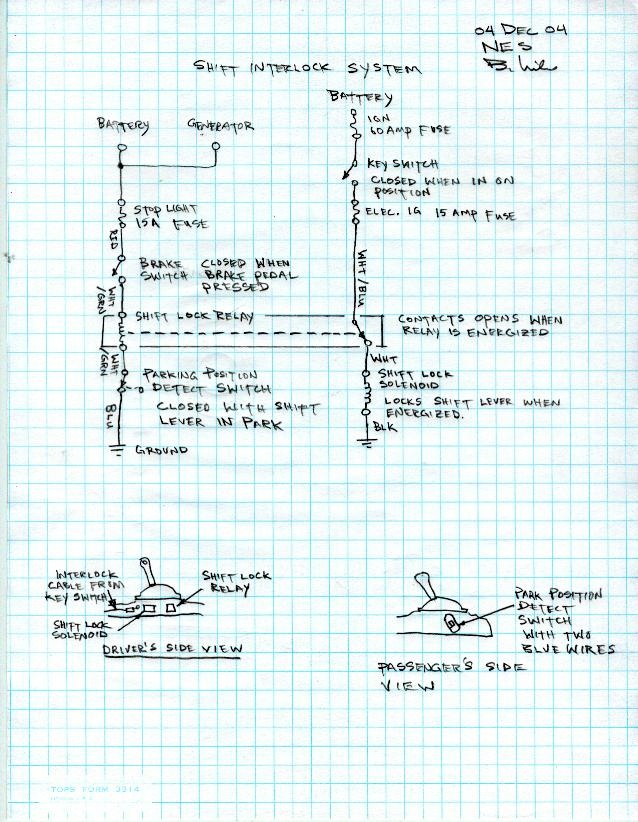 04 DEC 04
NES
SHIFT INTERLOCK SYSTEM
BATTERY
GENERATOR
STOP LIGHT
15A FUSE
RED
BRAKE CLOSED WHEN
SWITCH BRAKE PEDAL
PRESSED
WHT
/GRN
SHIFT LOCK RELAY
WHT
/GRN
PARKING POSITION
DETECT SWITCH
CLOSED WITH SHIFT
LEVER IN PARK
BLU
GROUND
BATTERY
IGN
60 AMP FUSE
KEY SWITCH
CLOSED WHEN IN ON
POSITION
ELEC. IG 15 AMP FUSE
WHT/BLU
CONTACTS OPENS WHEN
RELAY IS ENERGIZED
WHT
SHIFT LOCK
SOLENOID
LOCKS SHIFT LEVER WHEN
ENERGIZED.
BLK
INTERLOCK
CABLE FROM
KEY SWITCH
SHIFT LOCK
RELAY
SHIFT LOCK
SOLENOID
DRIVER'S SIDE VIEW
PARK POSITION
DETECT
SWITCH
WITH TWO
BLUE WIRES
PASSENGER'S SIDE
VIEW
TOPS FORM 3314